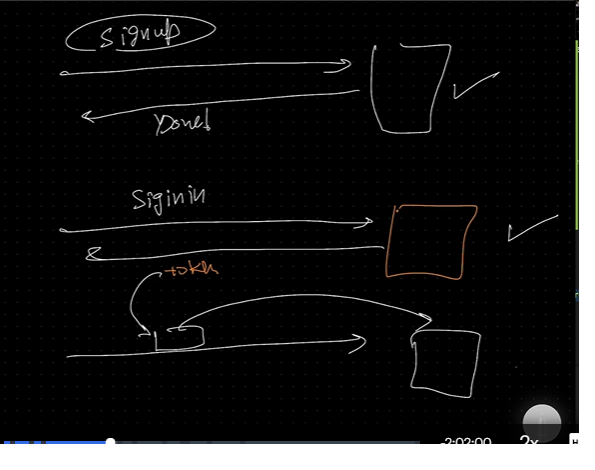 Signup
Done!
Siginin
token
-2:02:00 2x